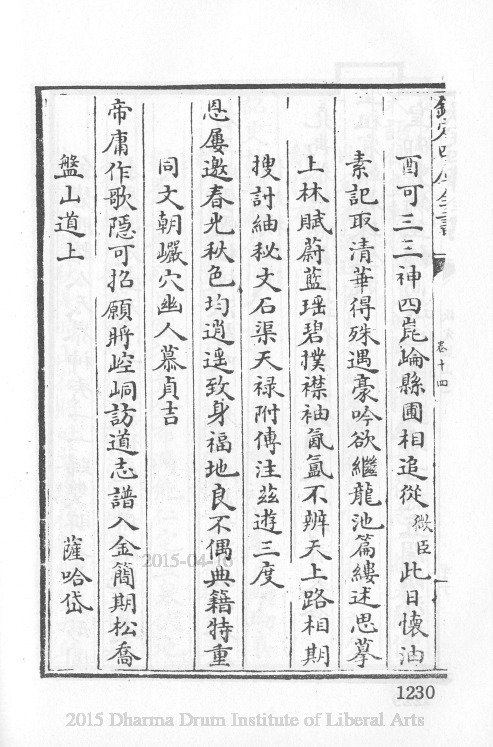 欽定四庫全書
卷十四
酉可三三神四崑崙縣圃相追從微臣此日懷油
素記取清華得殊遇豪吟欲繼龍池篇縷述思摹
上林賦蔚藍瑶碧撲襟袖氤氲不辨天上路相期
搜討紬秘文石渠天禄附傳注兹遊三度
恩屢邀春光秋色均逍遥致身福地良不偶典籍特重
同文朝巖穴幽人慕貞吉
帝庸作歌隱可招願將崆峒訪道志譜入金簡期松喬
盤山道上 薩哈岱
1230
2015-04-16
2015 Dharma Drum Institute of Liberal Arts